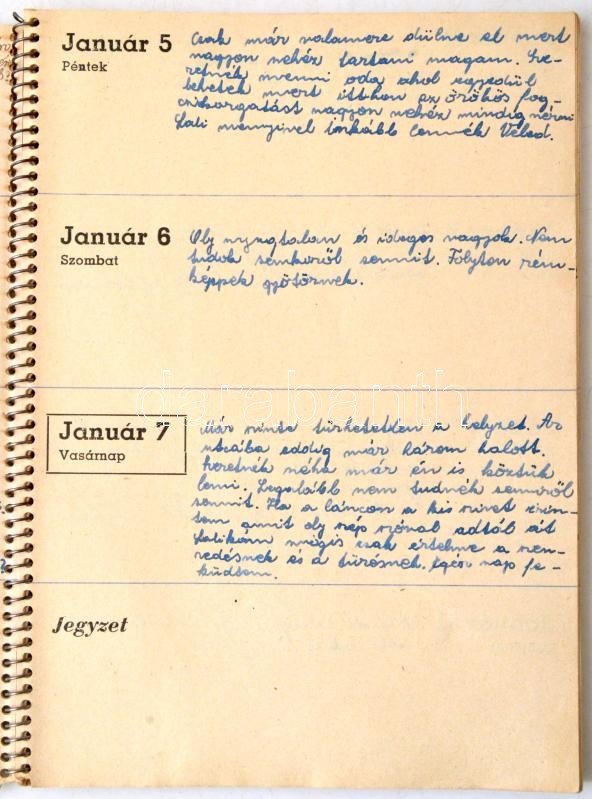 Január 5
Péntek
Csak már valamere dülne el mert
nagyon nehéz tartani magam. Sze-
retnék menni oda ahol egyedül
lehetek mert itthon az örökös fog-
csikorgatást nagyon nehéz mindig
Lali mennyivel inkább lennék Veled.
Január 6
Szombat
Oly nyugtalan és ideges vagyok. Nem
tudok semmiről semmit. Folyton rém-
képpek gyötörnek.
Január 7
Vasárnap
Már szinte türhetetlen a helyzet. Az
utcába eddig már három halott.
Szeretnék néha már én is köztük
lenni. Legalább nem tudnék semmiről
semmit. Ha a láncon a kis szivet érin-
tem amit oly szép szóval adtál át
Lalikám mégis csak értelme a szen-
vedésnek és a türésnek. Egész nap fe-
küdtem.
Jegyzet
darabanth